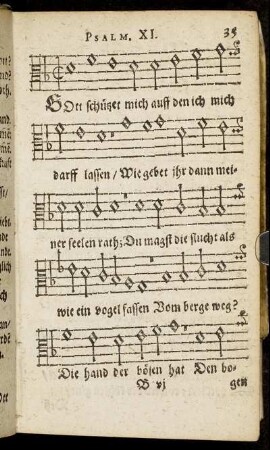 PSALM. XI. 35
GOtt schützet mich auff den ich mich
darff lassen / Wie gebet ihr dann mei-
ner seelen rath; Du magst die flucht als
wie ein vogel fassen Vom berge weg?
Die hand der bösen hat Den bo-
B vj gen